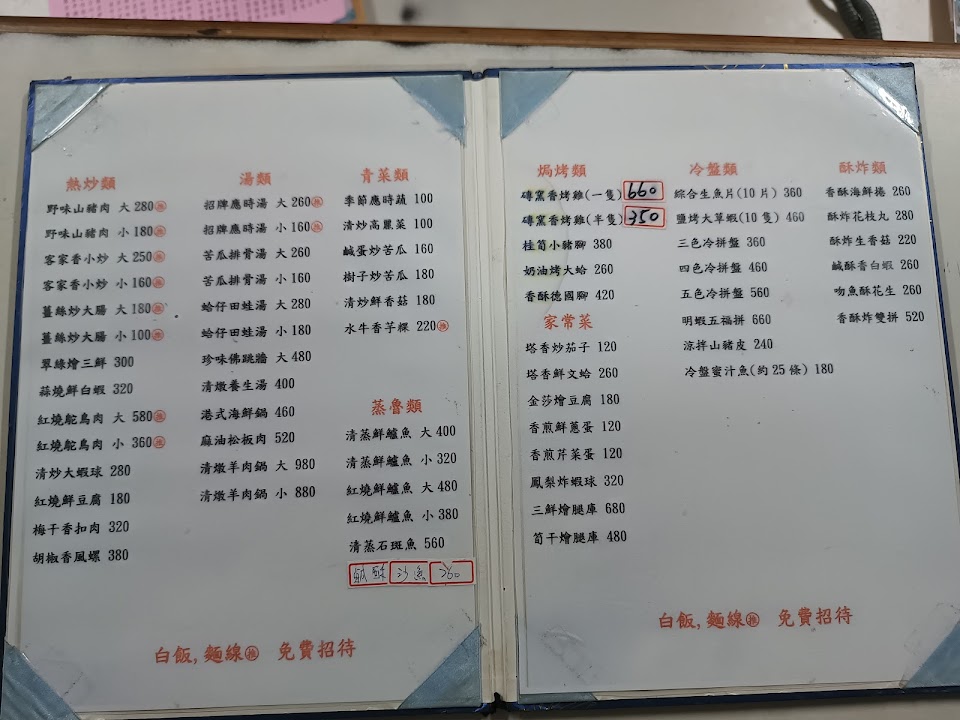 熱炒類
野味山豬肉 大 280㊟推
野味山豬肉 小 180推
客家香小炒 大 250推
客家香小炒 小 160推
薑絲炒大腸 大 180推
薑絲炒大腸 小 100推
翠綠燴三鮮 300
蒜燒鮮白蝦 320
紅燒鴕鳥肉 大 580推
紅燒鴕鳥肉 小 360推
清炒大蝦球 280
紅燒鮮豆腐 180
梅干香扣肉 320
胡椒香風螺 380
湯類
招牌應時湯 大 260推
招牌應時湯 小 160推
苦瓜排骨湯 大 260
苦瓜排骨湯 小 160
蛤仔田蛙湯 大 280
蛤仔田蛙湯 小 180
珍味佛跳牆 大 480
清燉養生湯 400
港式海鮮鍋 460
麻油松板肉 520
清燉羊肉鍋 大 980
清燉羊肉鍋 小 880
青菜類
季節應時蔬 100
清炒高麗菜 100
鹹蛋炒苦瓜 160
樹子炒苦瓜 180
清炒鮮香菇 180
水牛香芋粿 220推
蒸魯類
清蒸鮮鱸魚 大 400
清蒸鮮鱸魚 小 320
紅燒鮮鱸魚 大 480
紅燒鮮鱸魚 小 380
清蒸石斑魚 560
鹹酥 沙魚 260
白飯, 麵線推 免費招待
焗烤類
磚窯香烤雞(一隻) 660
磚窯香烤雞(半隻) 350
桂筍小豬腳 380
奶油烤大蛤 260
香酥德國腳 420
家常菜
塔香炒茄子 120
塔香鮮文蛤 260
金莎燴豆腐 180
香煎鮮蔥蛋 120
香煎芹菜蛋 120
鳳梨炸蝦球 320
三鮮燴腿庫 680
筍干燴腿庫 480
冷盤類
綜合生魚片(10 片) 360
鹽烤大草蝦(10 隻) 460
三色冷拼盤 360
四色冷拼盤 460
五色冷拼盤 560
明蝦五福拼 660
涼拌山豬皮 240
冷盤蜜汁魚(約 25 條) 180
酥炸類
香酥海鮮捲 260
酥炸花枝丸 280
酥炸生香菇 220
鹹酥香白蝦 260
吻魚酥花生 260
香酥炸雙拼 520
白飯, 麵線推 免費招待